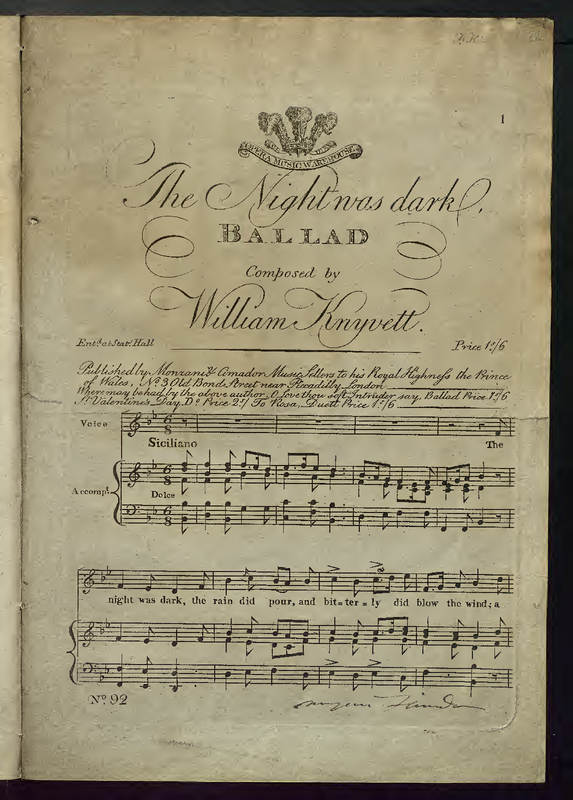 1
OPERA MUSIC WAREHOUSE
The Night was dark,
BALLAD
Composed by
William Knyvett.
Entd. at Stats. Hall
Price 1s/6
Published by Monzani & Cimador Music Sellers to his Royal Highness the Prince
of Wales, No. 3 Old Bond Street near Piccadilly London
Where may be had by the above author, O love thou soft Intruder say, Ballad Price 1s/6
St Valentines Day Do. Price 2s/ To Rosa, Duett Price 1s/6
Voice
Siciliano
The
Accompt.
Dolce
night was dark, the rain did pour, and bit=ter=ly did blow the wind; a
No. 92